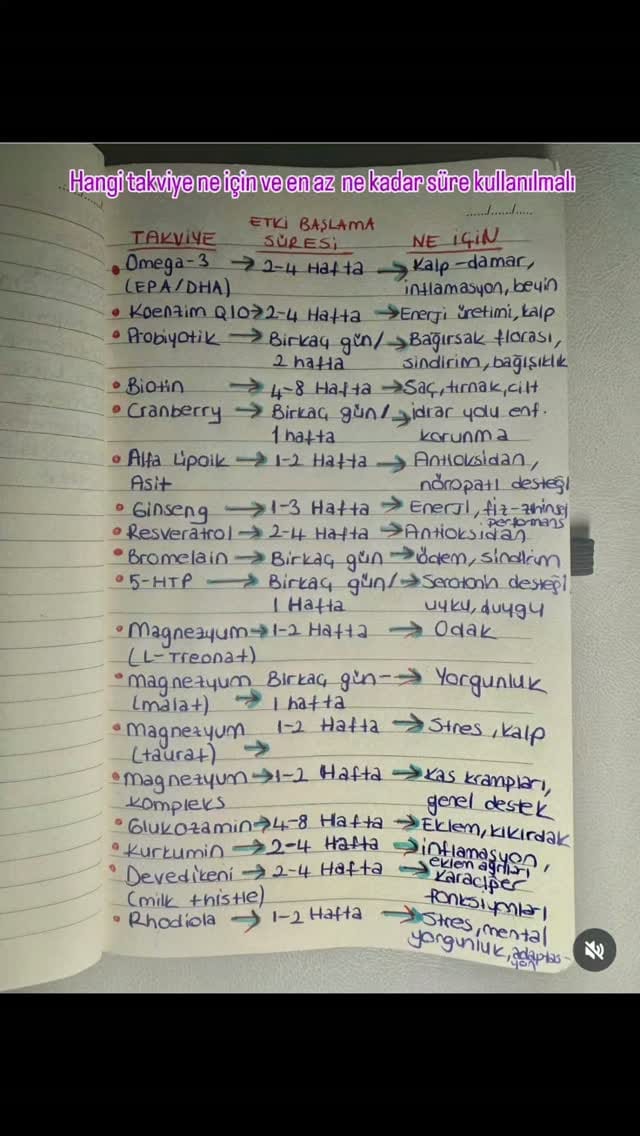 Hangi takviye ne için ve en az ne kadar süre kullanılmalı
...../...../.....
TAKVİYE ETKİ BAŞLAMA SÜRESİ NE İÇİN
• Omega-3 (EPA/DHA) → 2-4 Hafta → Kalp-damar, inflamasyon, beyin
• Koenzim Q10 → 2-4 Hafta → Enerji üretimi, kalp
• Probiyotik → Birkaç gün/ 2 hafta → Bağırsak florası, sindirim, bağışıklık
• Biotin → 4-8 Hafta → Saç, tırnak, cilt
• Cranberry → Birkaç gün/ 1 hafta → idrar yolu enf. korunma
• Alfa Lipoik Asit → 1-2 Hafta → Antioksidan, nöropati desteği
• Ginseng → 1-3 Hafta → Enerji, fiz-zihinsel performans
• Resveratrol → 2-4 Hafta → Antioksidan
• Bromelain → Birkaç gün → ödem, sindirim
• 5-HTP → Birkaç gün/ 1 Hafta → Serotonin desteği uyku, duygu
• Magnezyum (L-Treonat) → 1-2 Hafta → Odak
• Magnezyum (malat) → Birkaç gün- 1 hafta → Yorgunluk
• Magnezyum (taurat) → 1-2 Hafta → Stres, kalp
• Magnezyum kompleks → 1-2 Hafta → Kas krampları, genel destek
• Glukozamin → 4-8 Hafta → Eklem, kıkırdak
• Kurkumin → 2-4 Hafta → inflamasyon, eklem ağrıları
• Devedikeni (milk thistle) → 2-4 Hafta → Karaciğer fonksiyonları
• Rhodiola → 1-2 Hafta → Stres, mental yorgunluk, adaptasyon